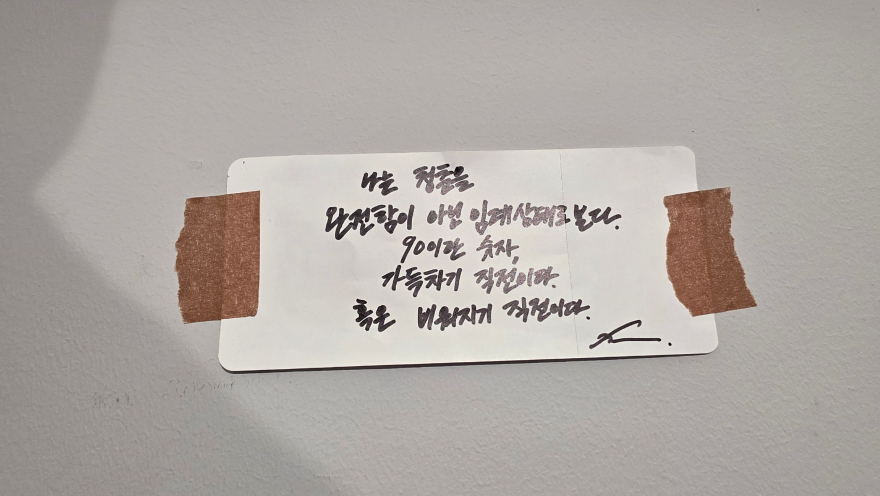 나는
완전함이 아닌 임계상태로 본다.
90이란 숫자,
가득차기 직전이다.
혹은 비워지기 직전이다.